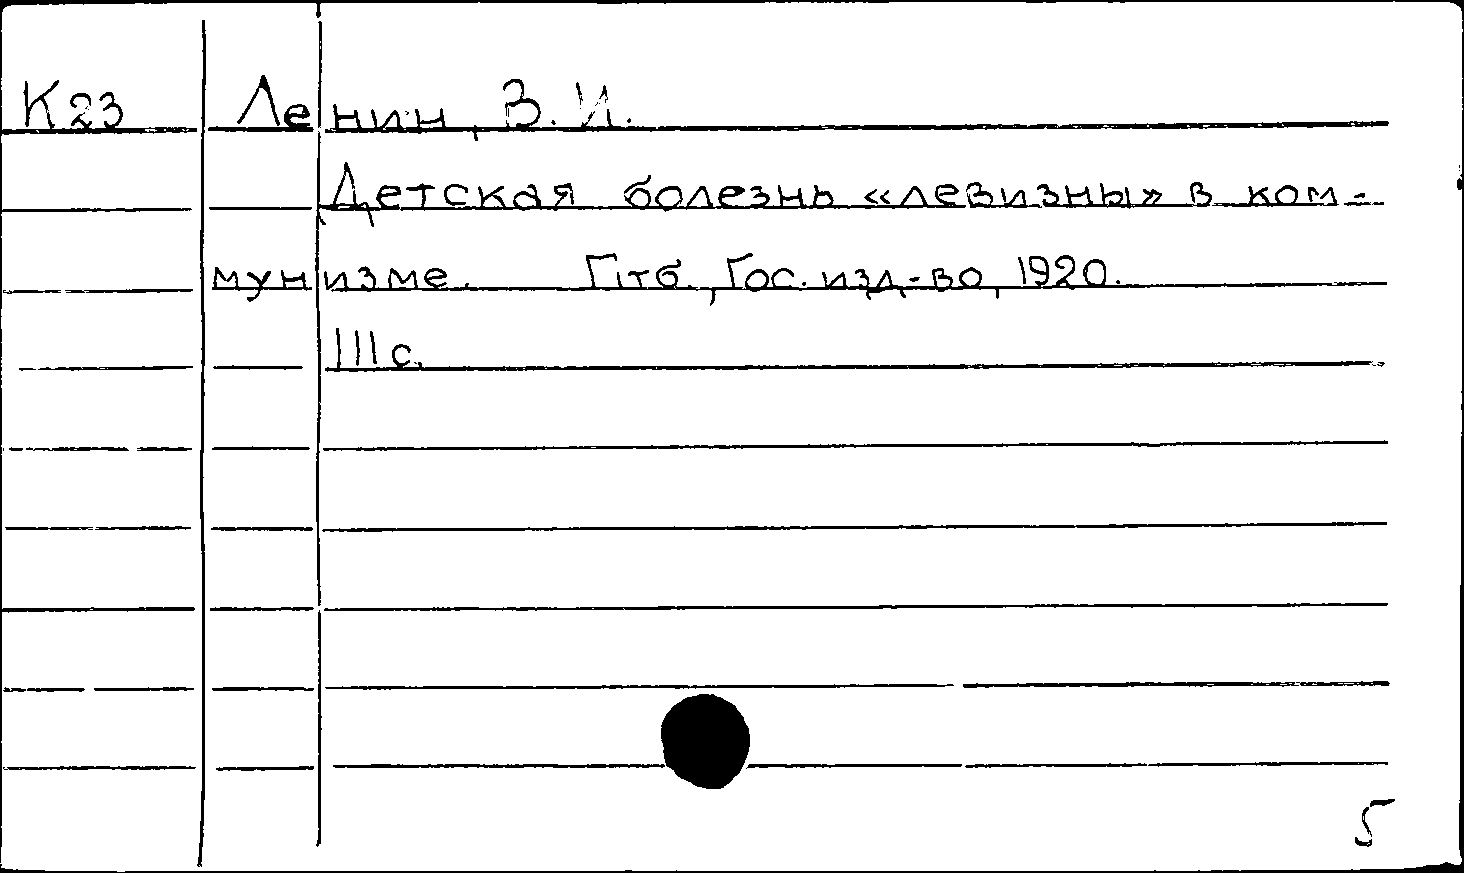 К23 Ленин, В. И.
Детская болезнь «левизны» в ком-
мунизме. Птб., Гос. изд-во, 1920.
111 с.
5